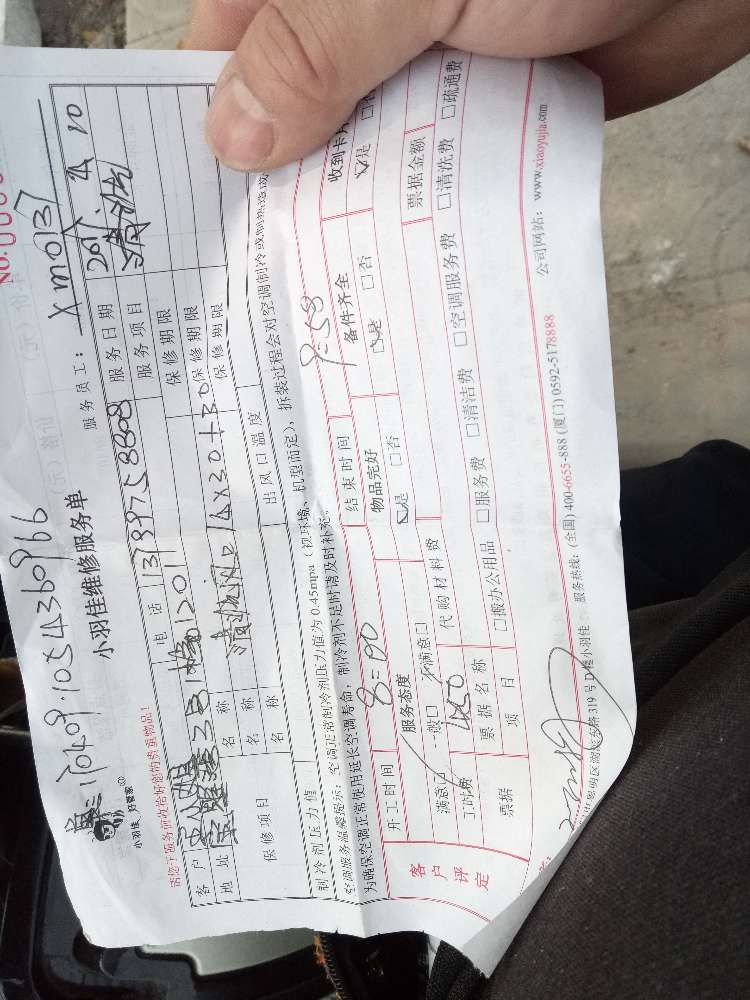 170409·1054360966
小羽佳维修服务单
服务员工： Xm0137
NO.
小羽佳 好管家
请您于服务前收拾好您的贵重物品！
客户
电话 13799758808
服务日期 2017.4.10
地址
1201
服务项目 清洗
保修项目
名称
保修期限
名称
14×30+30
保修期限
名称
保修期限
制冷剂压力值
出风口温度
空调服务温馨提示：空调正常制冷剂压力值为0.45mpa（视环境、机型而定），拆装过程会对空调制冷或制热造成
为确保空调正常使用延长空调寿命，制冷剂不足时请及时补充。
开工时间 8:00
结束时间 9:58
客户评定
服务态度
物品完好
备件齐全
收到卡片
满意□ 一般□ 不满意□
☑是 □否
☑是 □否
☑是
工时费 450
代购材料费
票据金额
票据
票据名称
项目
□搬办公用品 □服务费 □清洁费 □空调服务费 □清洗费 □疏通费
319号 小羽佳 服务热线：(全国) 400-6655-888 (厦门) 0592-5178888 公司网站：www.xiaoyujia.com